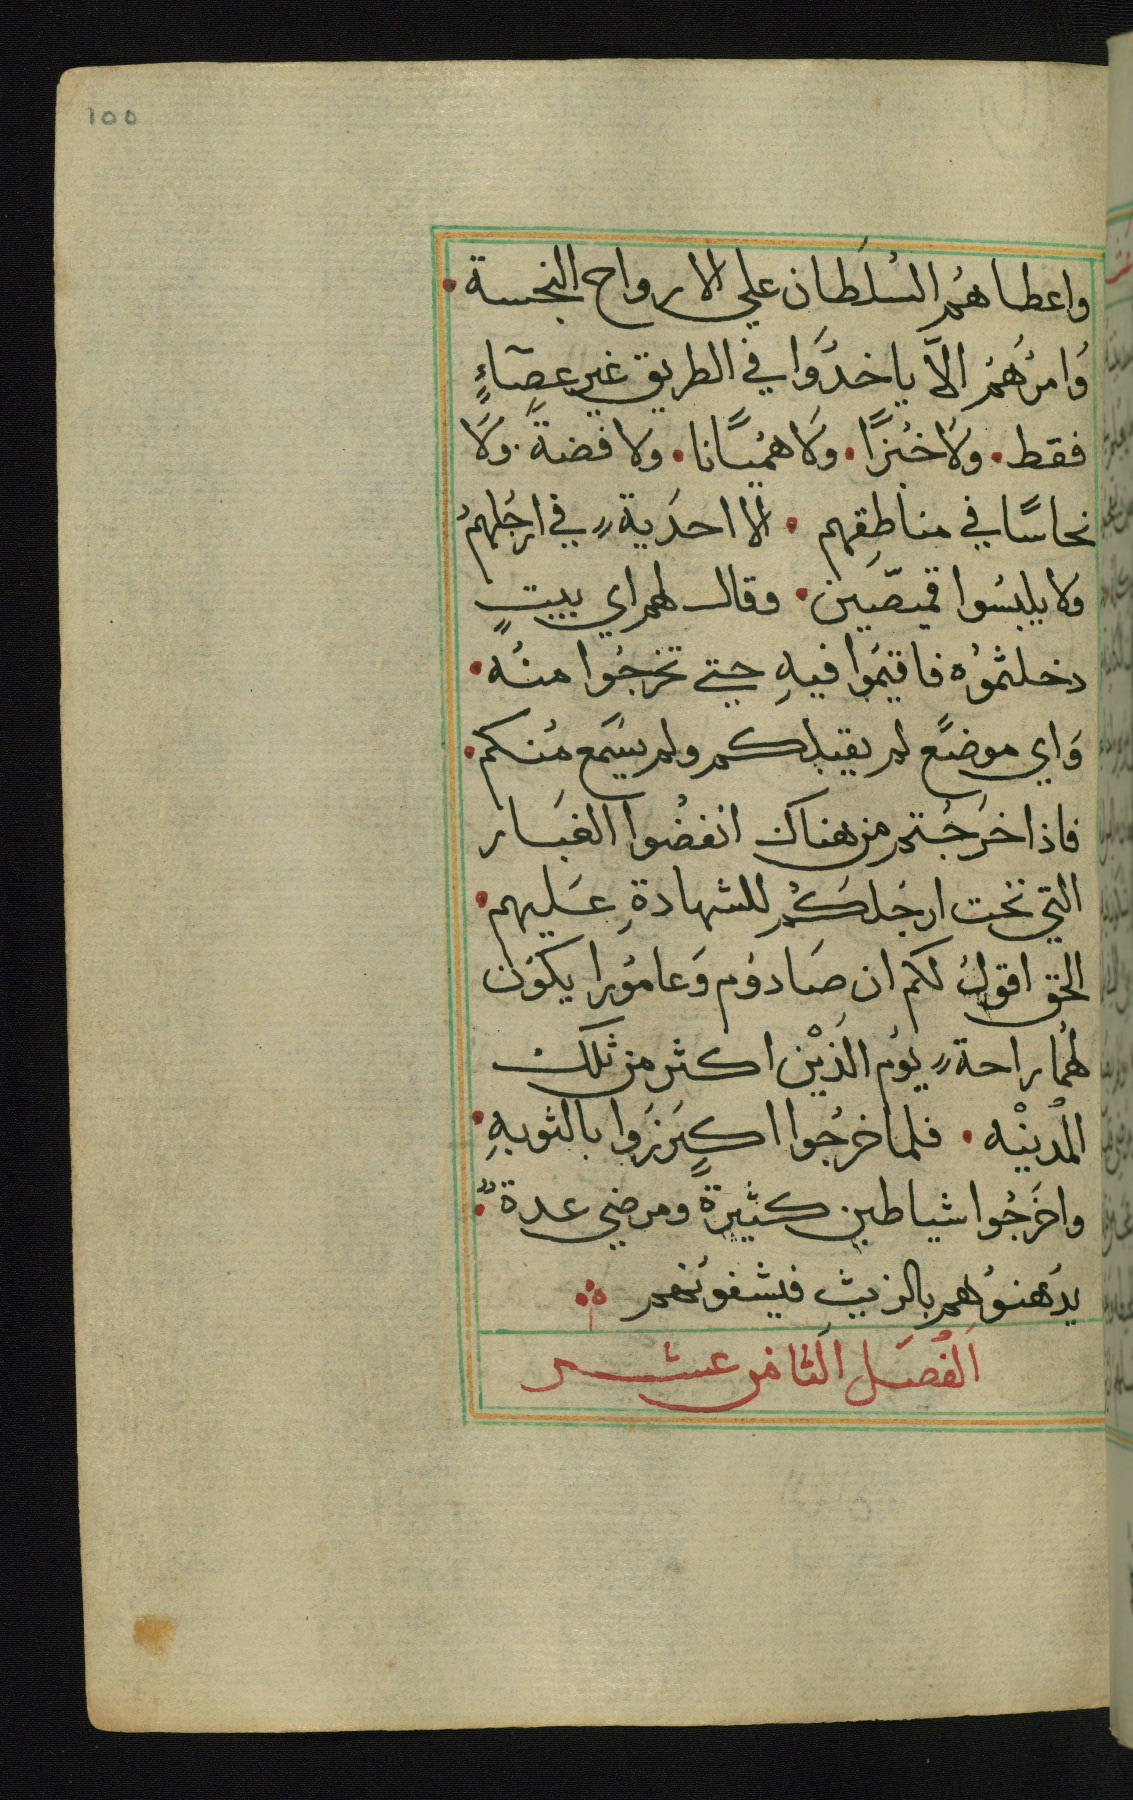 ١٥٥
واعطاهُم السُلَطان علي الارواح النجسة •
وَامرُهُم الاَّ ياخدُوا في الطريق غير عصَآءٍ
فقط • ولَا خُبزًا • ولَا هميًانا • ولا فضةً . ولَا
نحاسًا في مناطِقهم • الا احدَية في ارجُلهمُ
ولا يلبسُوا قميصّين • وقال لهم اي بيتٍ
دخلتموُه فاقيمُوا فيهِ حتي تخرجُوا منُه •
وَاي موضعً لم يقبلكم ولم يسَمع مُنكم •
فاذا خرَجُتم من هناك انفضُوا الغبَار
التي تحت ارجَلكُم للشهادةِ عَليهم •
الحق اقولُ لكم ان صَادوُم وَعاموُرا يكوُن
لهُما راحة يوُم الدَيْن اكثر من تلكُ
المُدينْه • فلما خرجُوا اكرَزوا بالتوبهِ •
واخَرجُوا شياطين كثيرةً ومرضي عدة
يدَهنوُهم بالزيت فيشفونهم
اَلفُصَل الَثامن عشر